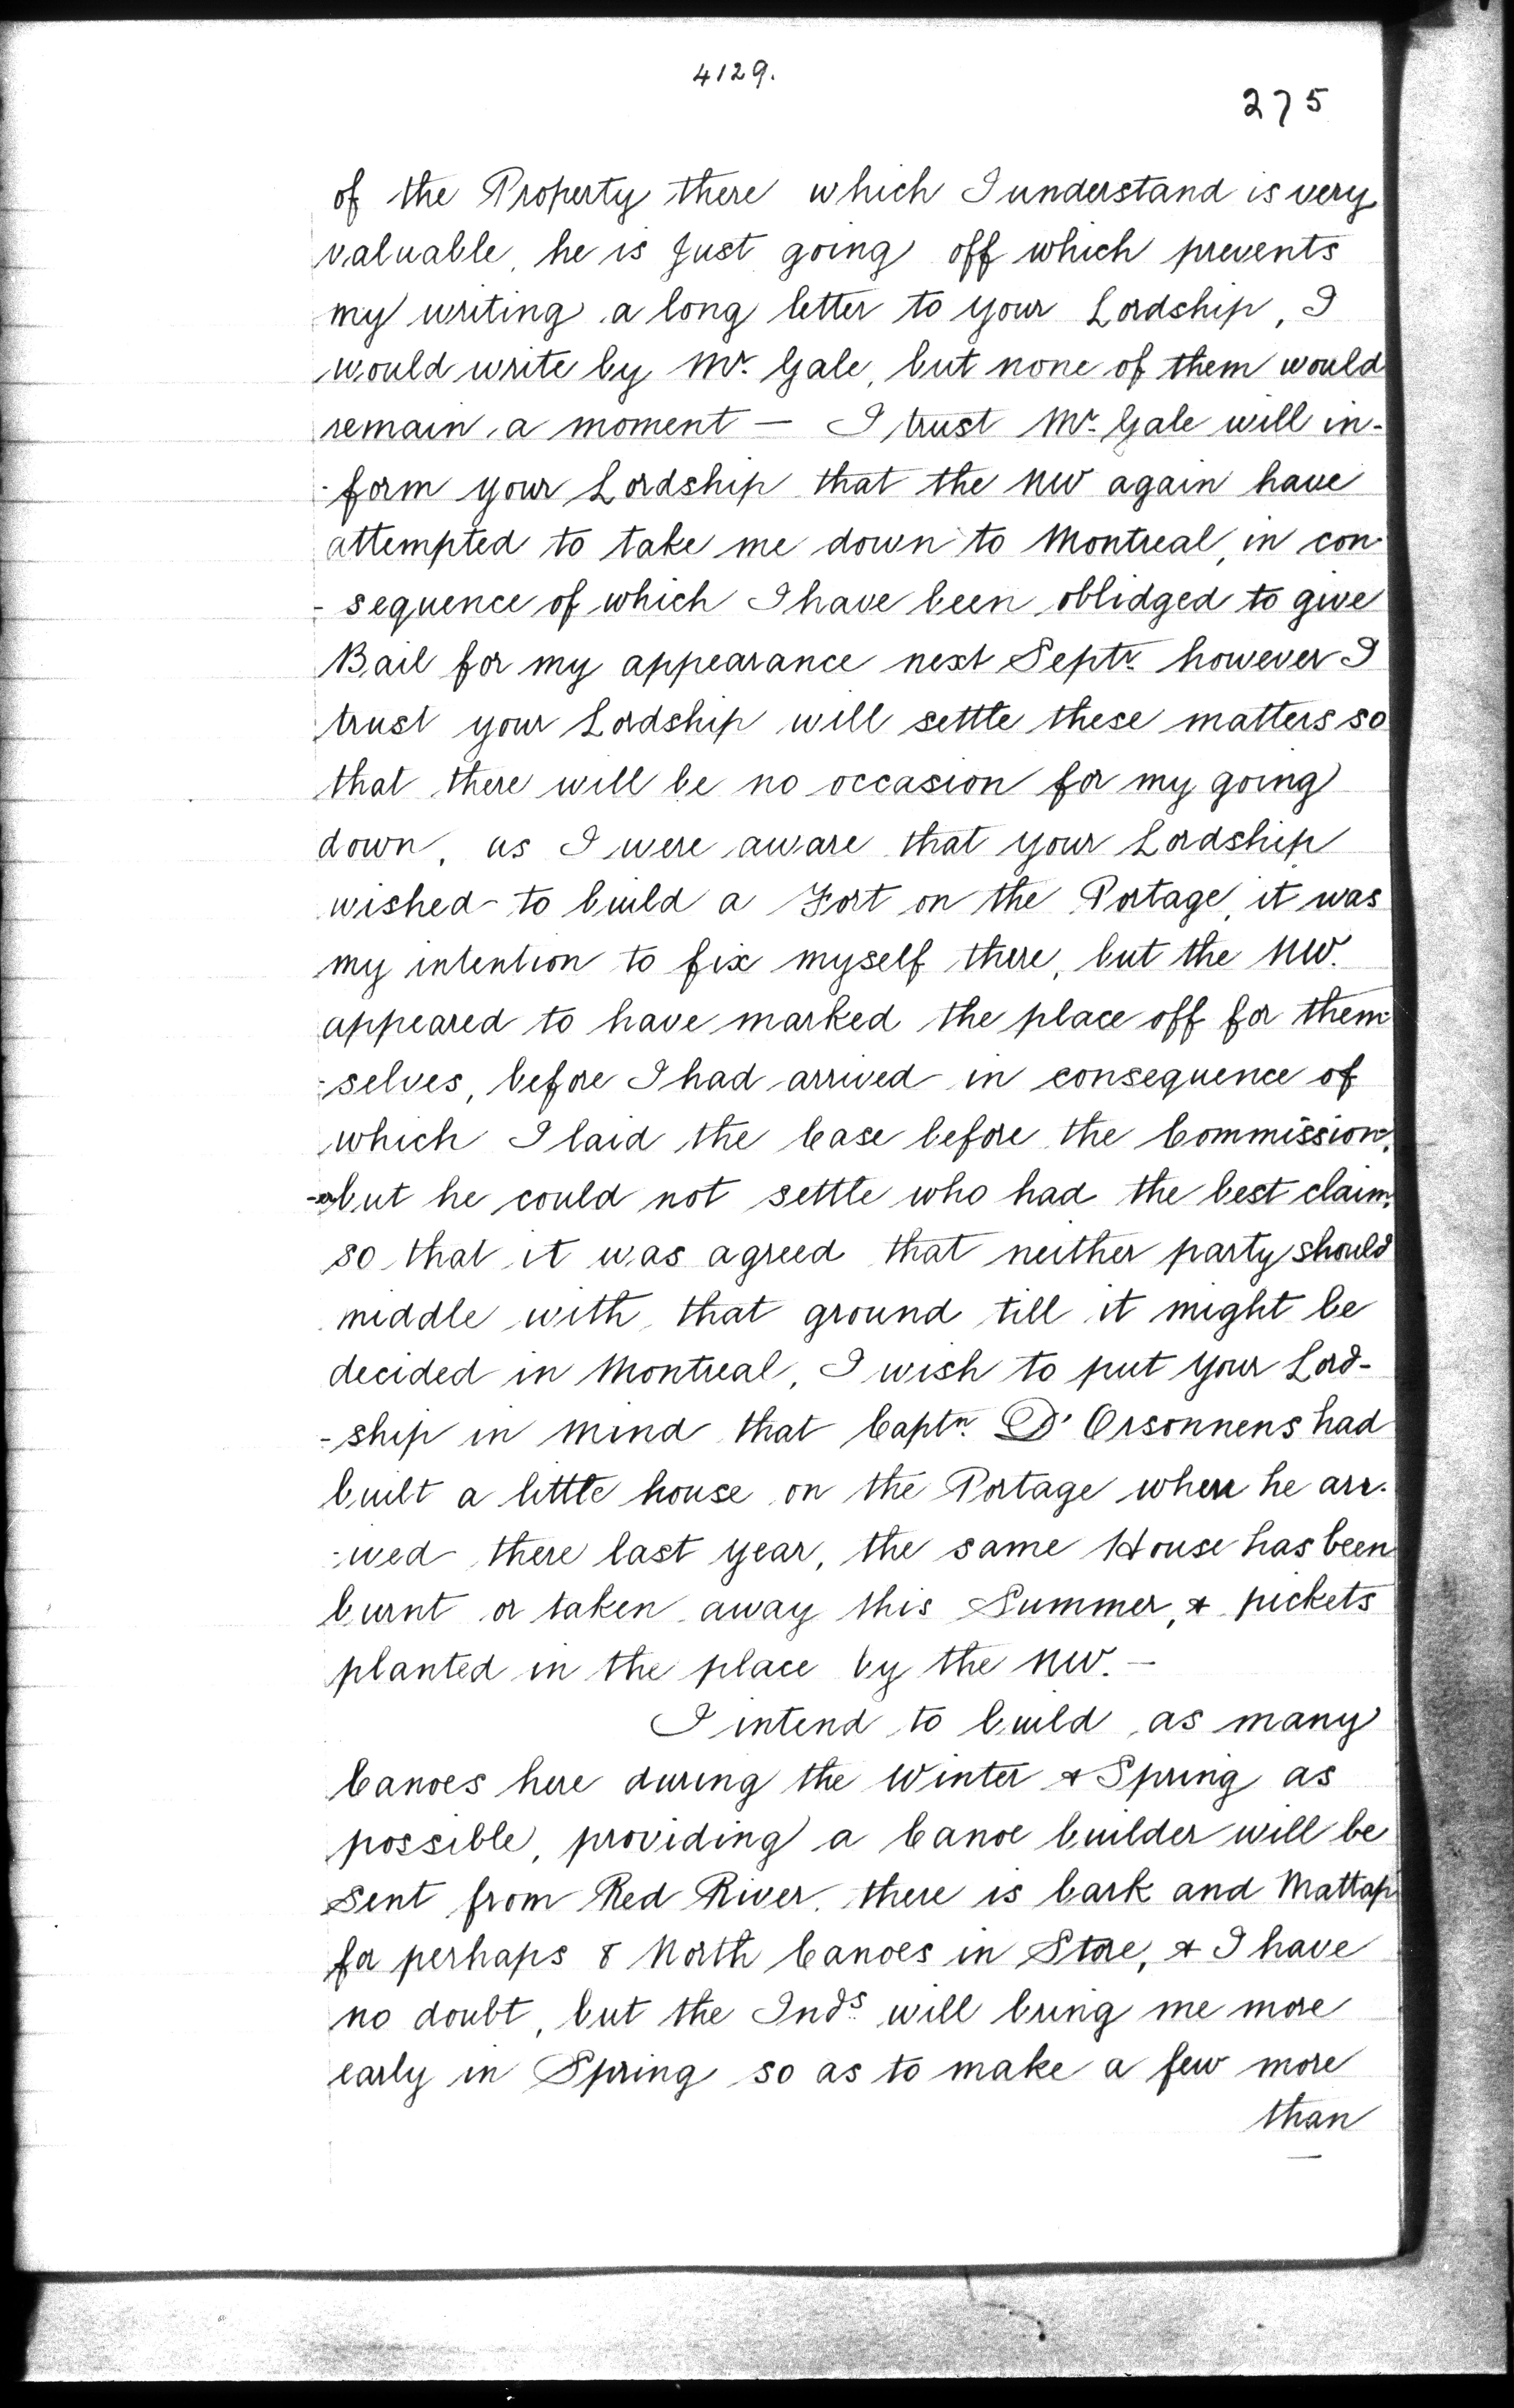 4129.
275
of the Property there which I understand is very
valuable, he is just going off which prevents
my writing a long letter to your Lordship, I
would write by Mr. Gale, but none of them would
remain a moment — I trust Mr. Gale will in-
-form your Lordship that the NW again have
attempted to take me down to Montreal, in con-
-sequence of which I have been oblidged to give
Bail for my appearance next Septr. however I
trust your Lordship will settle these matters so
that there will be no occasion for my going
down, as I were aware that your Lordship
wished to build a Fort on the Portage, it was
my intention to fix myself there, but the NW.
appeared to have marked the place off for them-
-selves, before I had arrived in consequence of
which I laid the Case before the Commission-
-er but he could not settle who had the best claim.
so that it was agreed that neither party should
middle with that ground till it might be
decided in Montreal, I wish to put your Lord-
-ship in mind that Captn. D'Orsonnens had
built a little house on the Portage when he arr-
-ived there last year, the same House has been
burnt or taken away this Summer, & pickets
planted in the place by the NW. —
I intend to build as many
Canoes here during the Winter & Spring as
possible, providing a Canoe builder will be
sent from Red River. there is bark and Mattap
for perhaps 8 North Canoes in Store, & I have
no doubt, but the Inds. will bring me more
early in Spring so as to make a few more
than